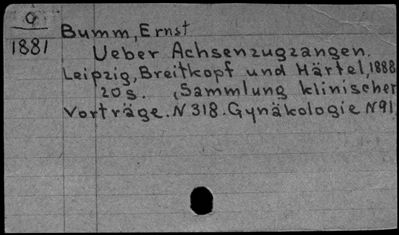 O
1881
Bumm, Ernst
Ueber Achsenzugzangen.
Leipzig, Breitkopf und Härtel, 1888
20 S. (Sammlung klinischer
Vorträge. N 318. Gynäkologie N 91